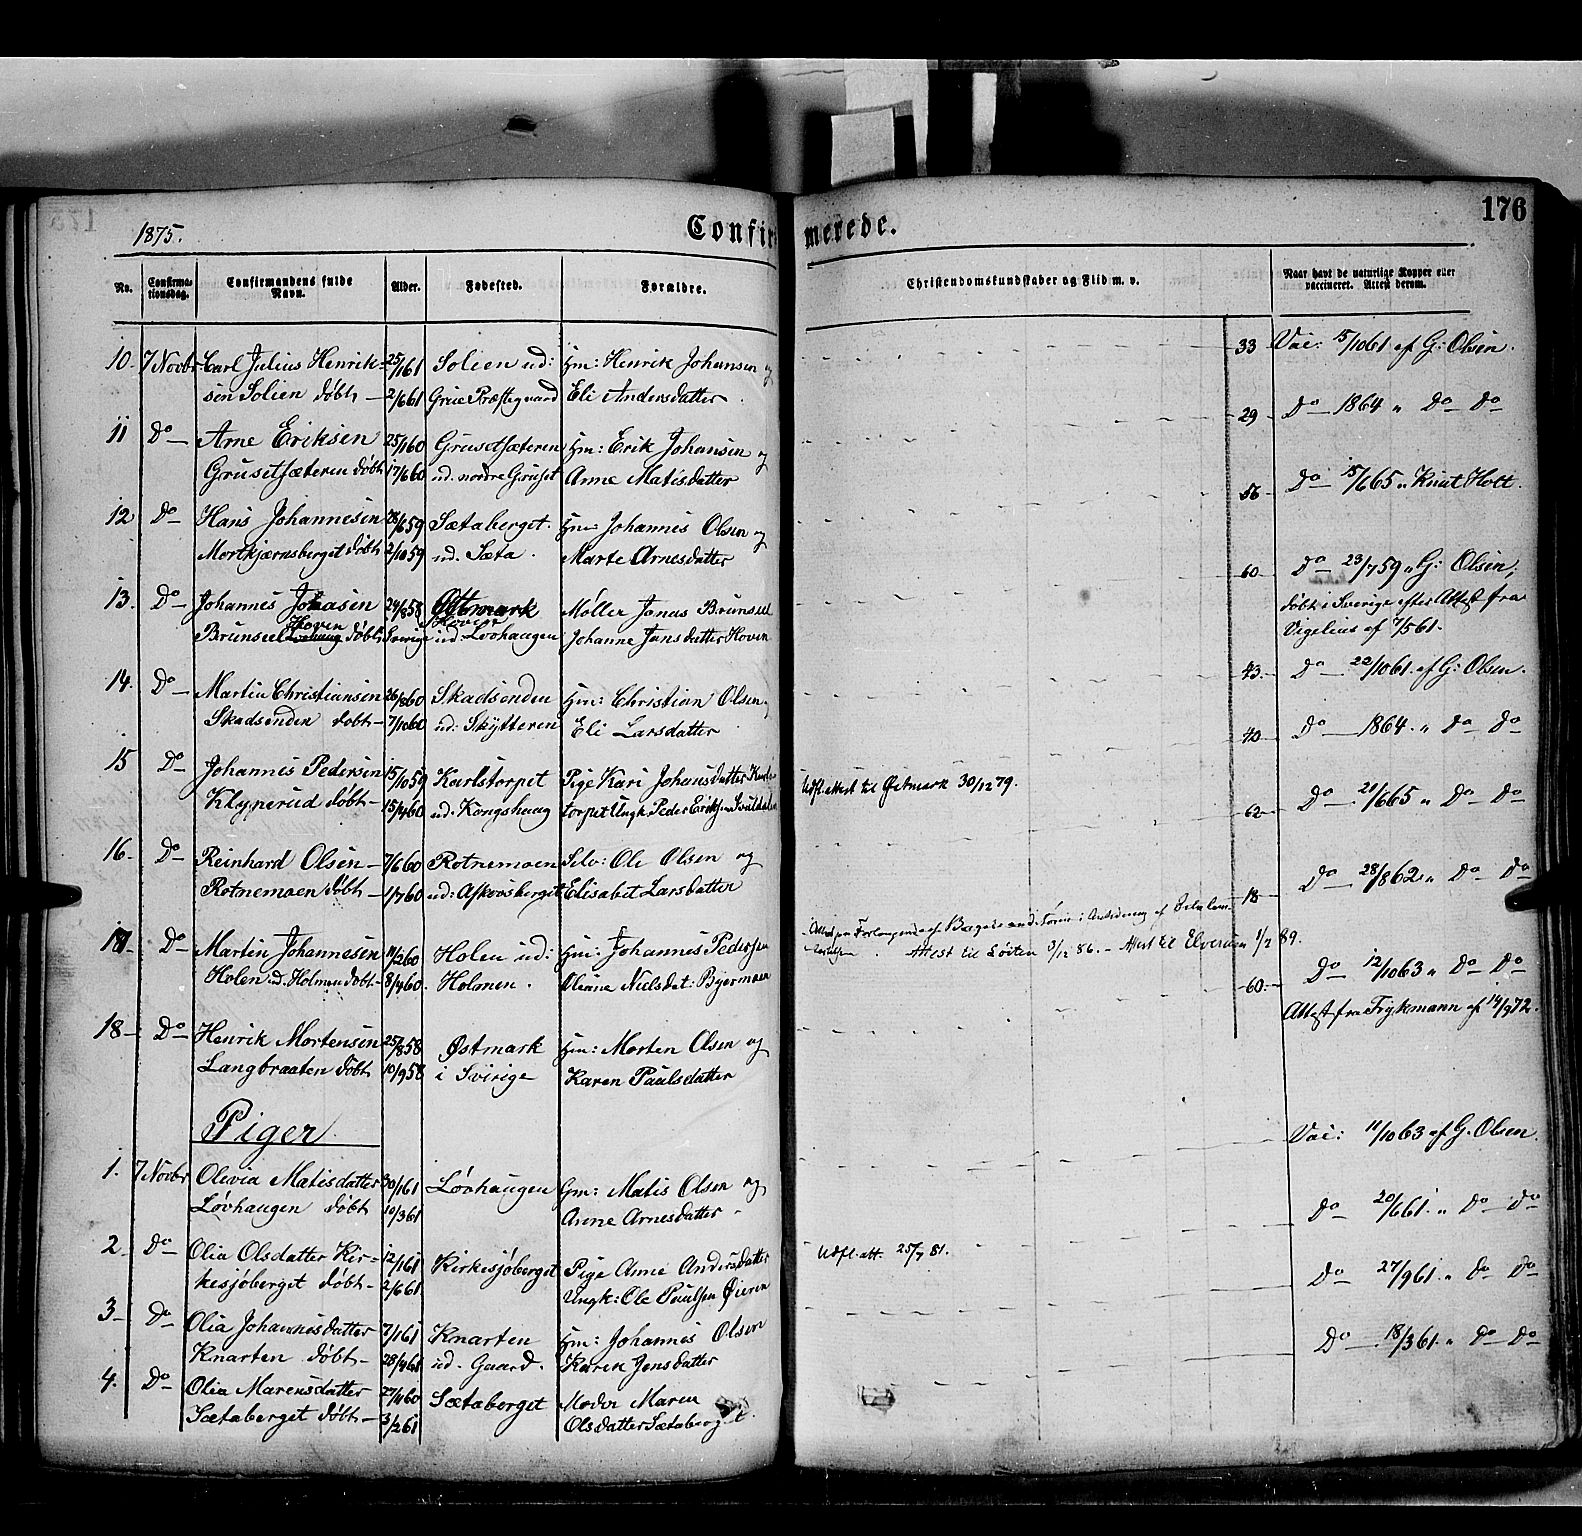 176
1875.
Confirmerede.
No. Confirmationsdag. Confirmandens fulde Navn. Alder. Fødested. Forældre. Christendomskundskaber og Flid m. v. Naar havt de naturlige Kopper eller vaccineret. Attest derom.
10. 7 Novbr Carl Julius Henrik- 25/1 61 Solien ud: Hm: Henrik Johansen og 33 Vac: 15/10 61 af G: Olsen.
sen Solien døbt 2/6 61 Grue Præstegaard Eli Andersdatter.
11 Do Arne Eriksen 25/1 60 Grusetsæteren Hm: Erik Johansen og 29 Do 1864 " Do Do
Grusetsæteren døbt 17/6 60 ud. nordre Gruset Anne Matisdatter
12 Do Hans Johannesen 28/6 59 Sætaberget. Hm: Johannes Olsen og 56 Do 15/6 65 " Knut Holt.
Mortkjærnsberget døbt 2/10 59 ud. Sæta. Marte Arnesdatter
13. Do Johannes Jonasen 24/8 58 Østmark Møller Jonas Brunsel 60 Do 23/7 59 " G: Olsen;
Brunsel Hoven døbt Sverige Hoven ud. Lovhaugen Johanne Jansdatter Hoven døbt i Sverige efter Attest fra
Vigelius af 7/5 61.
14. Do Martin Christiansen 26/8 60 Skadsenden Hm: Christian Olsen 43. Do 22/10 61. af G: Olsen.
Skadsenden døbt 7/10 60 ud: Skytteren Eli Larsdatter
15 Do Johannes Pedersen 15/10 59 Karlstorpet Pige Kari Johansdatter Karls- Udfl. attest til Østmark 30/12 79. 40 Do 1864. " Do Do
Klyperud døbt 15/4 60 ud. Kongshaug torpet Ungk. Peder Eriksen
16. Do Reinhard Olsen 7/6 60 Rotnemoen Selv: Ole Olsen og 62 Do 21/6 65 " Do Do
Rotnemoen døbt 1/7 60 ud: Askovsberget Elisabet Larsdatter
17. Do Martin Johannesen 11/2 60 Holen ud: Hm: Johannes Pedersen 18 Do 28/8 62 " Do Do
Holen ud. Holmen døbt 8/4 60. Holmen. Oliane Nielsdat: Byermoen
Attest til Løiten 3/12 86. – Attest til Elverum 1/2 89.
18 Do Henrik Mortensen 25/8 58 Østmark Hm: Morten Olsen og 60. Do 12/10 63 " Do Do
Langbraaten døbt 10/9 58 i Sverige Karen Paulsdatter Attest fra Frykmann af 14/9 72.
Piger
1. 7 Novbr Olevia Matisdatter 30/1 61 Løvhaugen Gm: Matis Olsen og Vac: 11/10 63 af G. Olsen.
Løvhaugen døbt 10/3 61 Anne Arnesdatter
2. Do Olia Olsdatter Kir- 12/1 61 Kirkesjøberget Pige Anne Andersdatter Udfl. att. 25/7 81. Do 20/6 61. " Do Do
kesjøberget døbt 2/6 61 Ungk: Ole Paulsen Øieren
3 Do Olia Johannesdatter 7/1 61 Knarten Hm: Johannes Olsen Do 27/9 61. " Do Do
Knarten døbt 28/4 61 ud. Gaard. Karen Jensdatter
4. Do Olia Marensdatter 27/4 60 Sætaberget Moder Maren Do 18/3 61. " Do Do
Sætaberget døbt 3/2 61 Olsdatter Sætaberget.